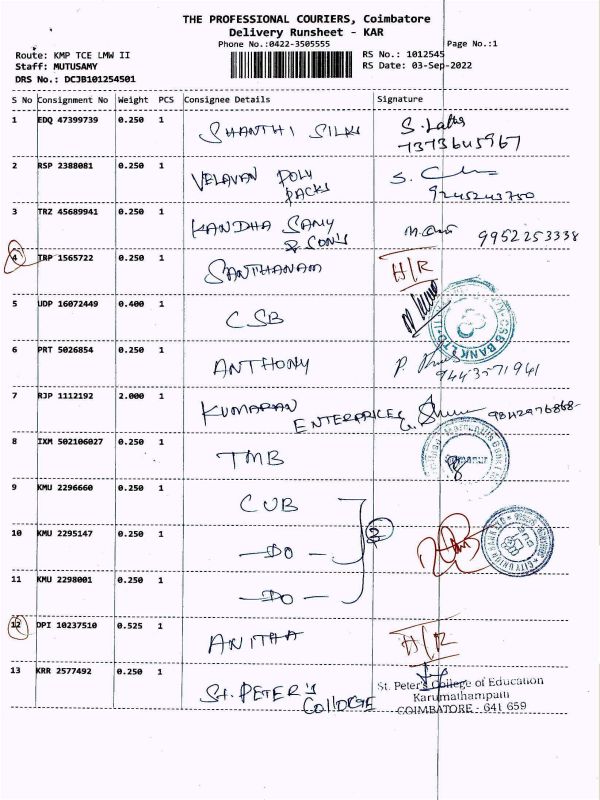 THE PROFESSIONAL COURIERS, Coimbatore
Delivery Runsheet - KAR
Phone No.:0422-3505555
Page No.:1
Route: KMP TCE LMW II
RS No.: 1012545
Staff: MUTUSAMY
RS Date: 03-Sep-2022
DRS No.: DCJB101254501
S No Consignment No Weight PCS Consignee Details Signature
1 EDQ 47399739 0.250 1 SHANTHI SILKS S. Latha
7373645967
2 RSP 2388081 0.250 1 VELAVAN POLY PACKS
9245243750
3 TRZ 45689941 0.250 1 KANDHA SAMY & SONS 9952253338
4 TRP 1565722 0.250 1 SANTHANAM H/R
5 UDP 16072449 0.400 1 CSB
CSB BANK LTD
6 PRT 5026854 0.250 1 ANTHONY
9443571941
7 RJP 1112192 2.000 1 KUMARAN ENTERPRICES 9842976868
8 IXM 502106027 0.250 1 TMB
9 KMU 2296660 0.250 1 CUB
10 KMU 2295147 0.250 1 -DO- 3
CITY UNION BANK LTD
11 KMU 2298001 0.250 1 -DO-
12 DPI 10237510 0.525 1 ANITHA H/R
13 KRR 2577492 0.250 1 St. PETER'S COllOEGE
St. Peter's College of Education
Karumathampatti
COIMBATORE - 641 659